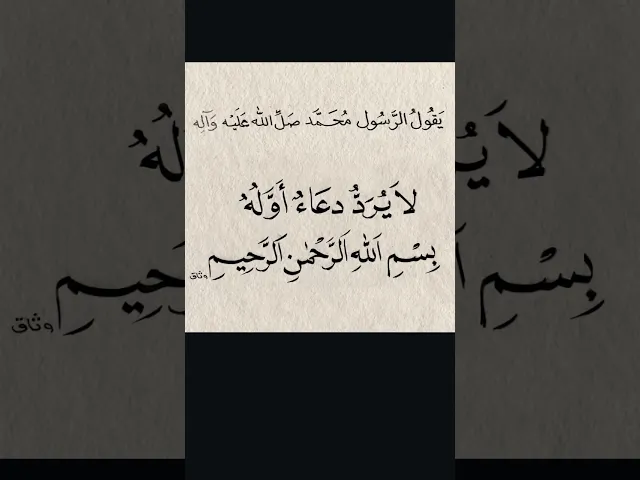 يَقُولُ الرَّسُول مُحَمَّد صَلِّ اللّٰه عَلَيْه وَآلِه
لاَ يُرَدُّ دعَاءٌ أَوَّلُهُ
بِسْمِ اَللّٰهِ اَلرَّحْمٰنِ اَلرَّحِيمِ
وثاق